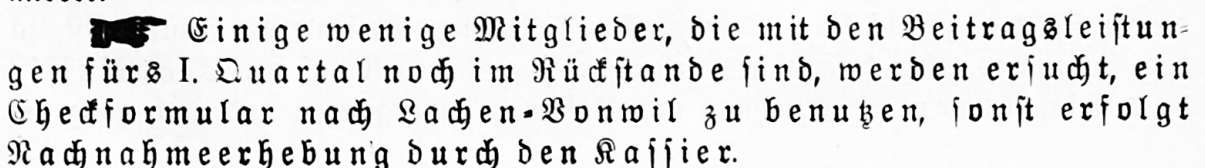 ☛ Einige wenige Mitglieder, die mit den Beitragsleistun-
gen fürs I. Quartal noch im Rückstande sind, werden ersucht, ein
Checkformular nach Lachen-Vonwil zu benutzen, sonst erfolgt
Nachnahmeerhebung durch den Kassier.